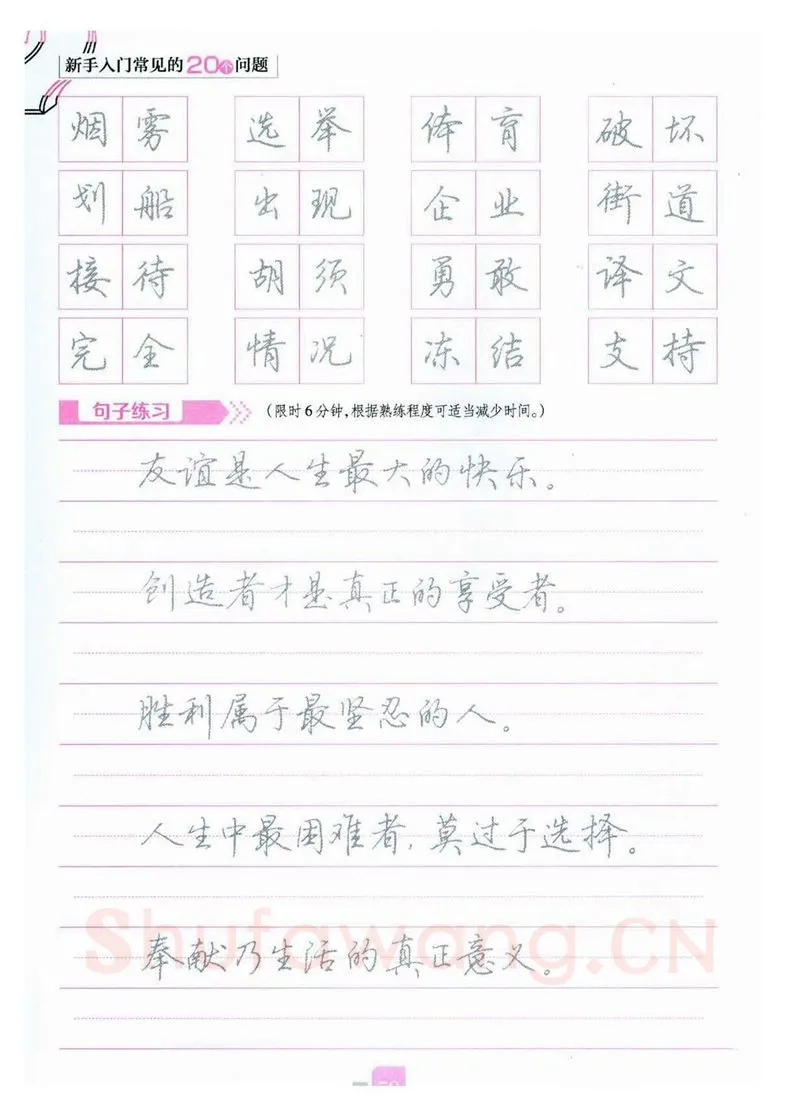 新手入门常见的20个问题
烟雾 选举 体育 破坏
划船 出现 企业 街道
接待 胡须 勇敢 译文
完全 情况 冻结 支持
句子练习 (限时6分钟,根据熟练程度可适当减少时间。)
友谊是人生最大的快乐。
创造者才是真正的享受者。
胜利属于最坚忍的人。
人生中最困难者,莫过于选择。
Shufawang.CN
奉献乃生活的真正意义。